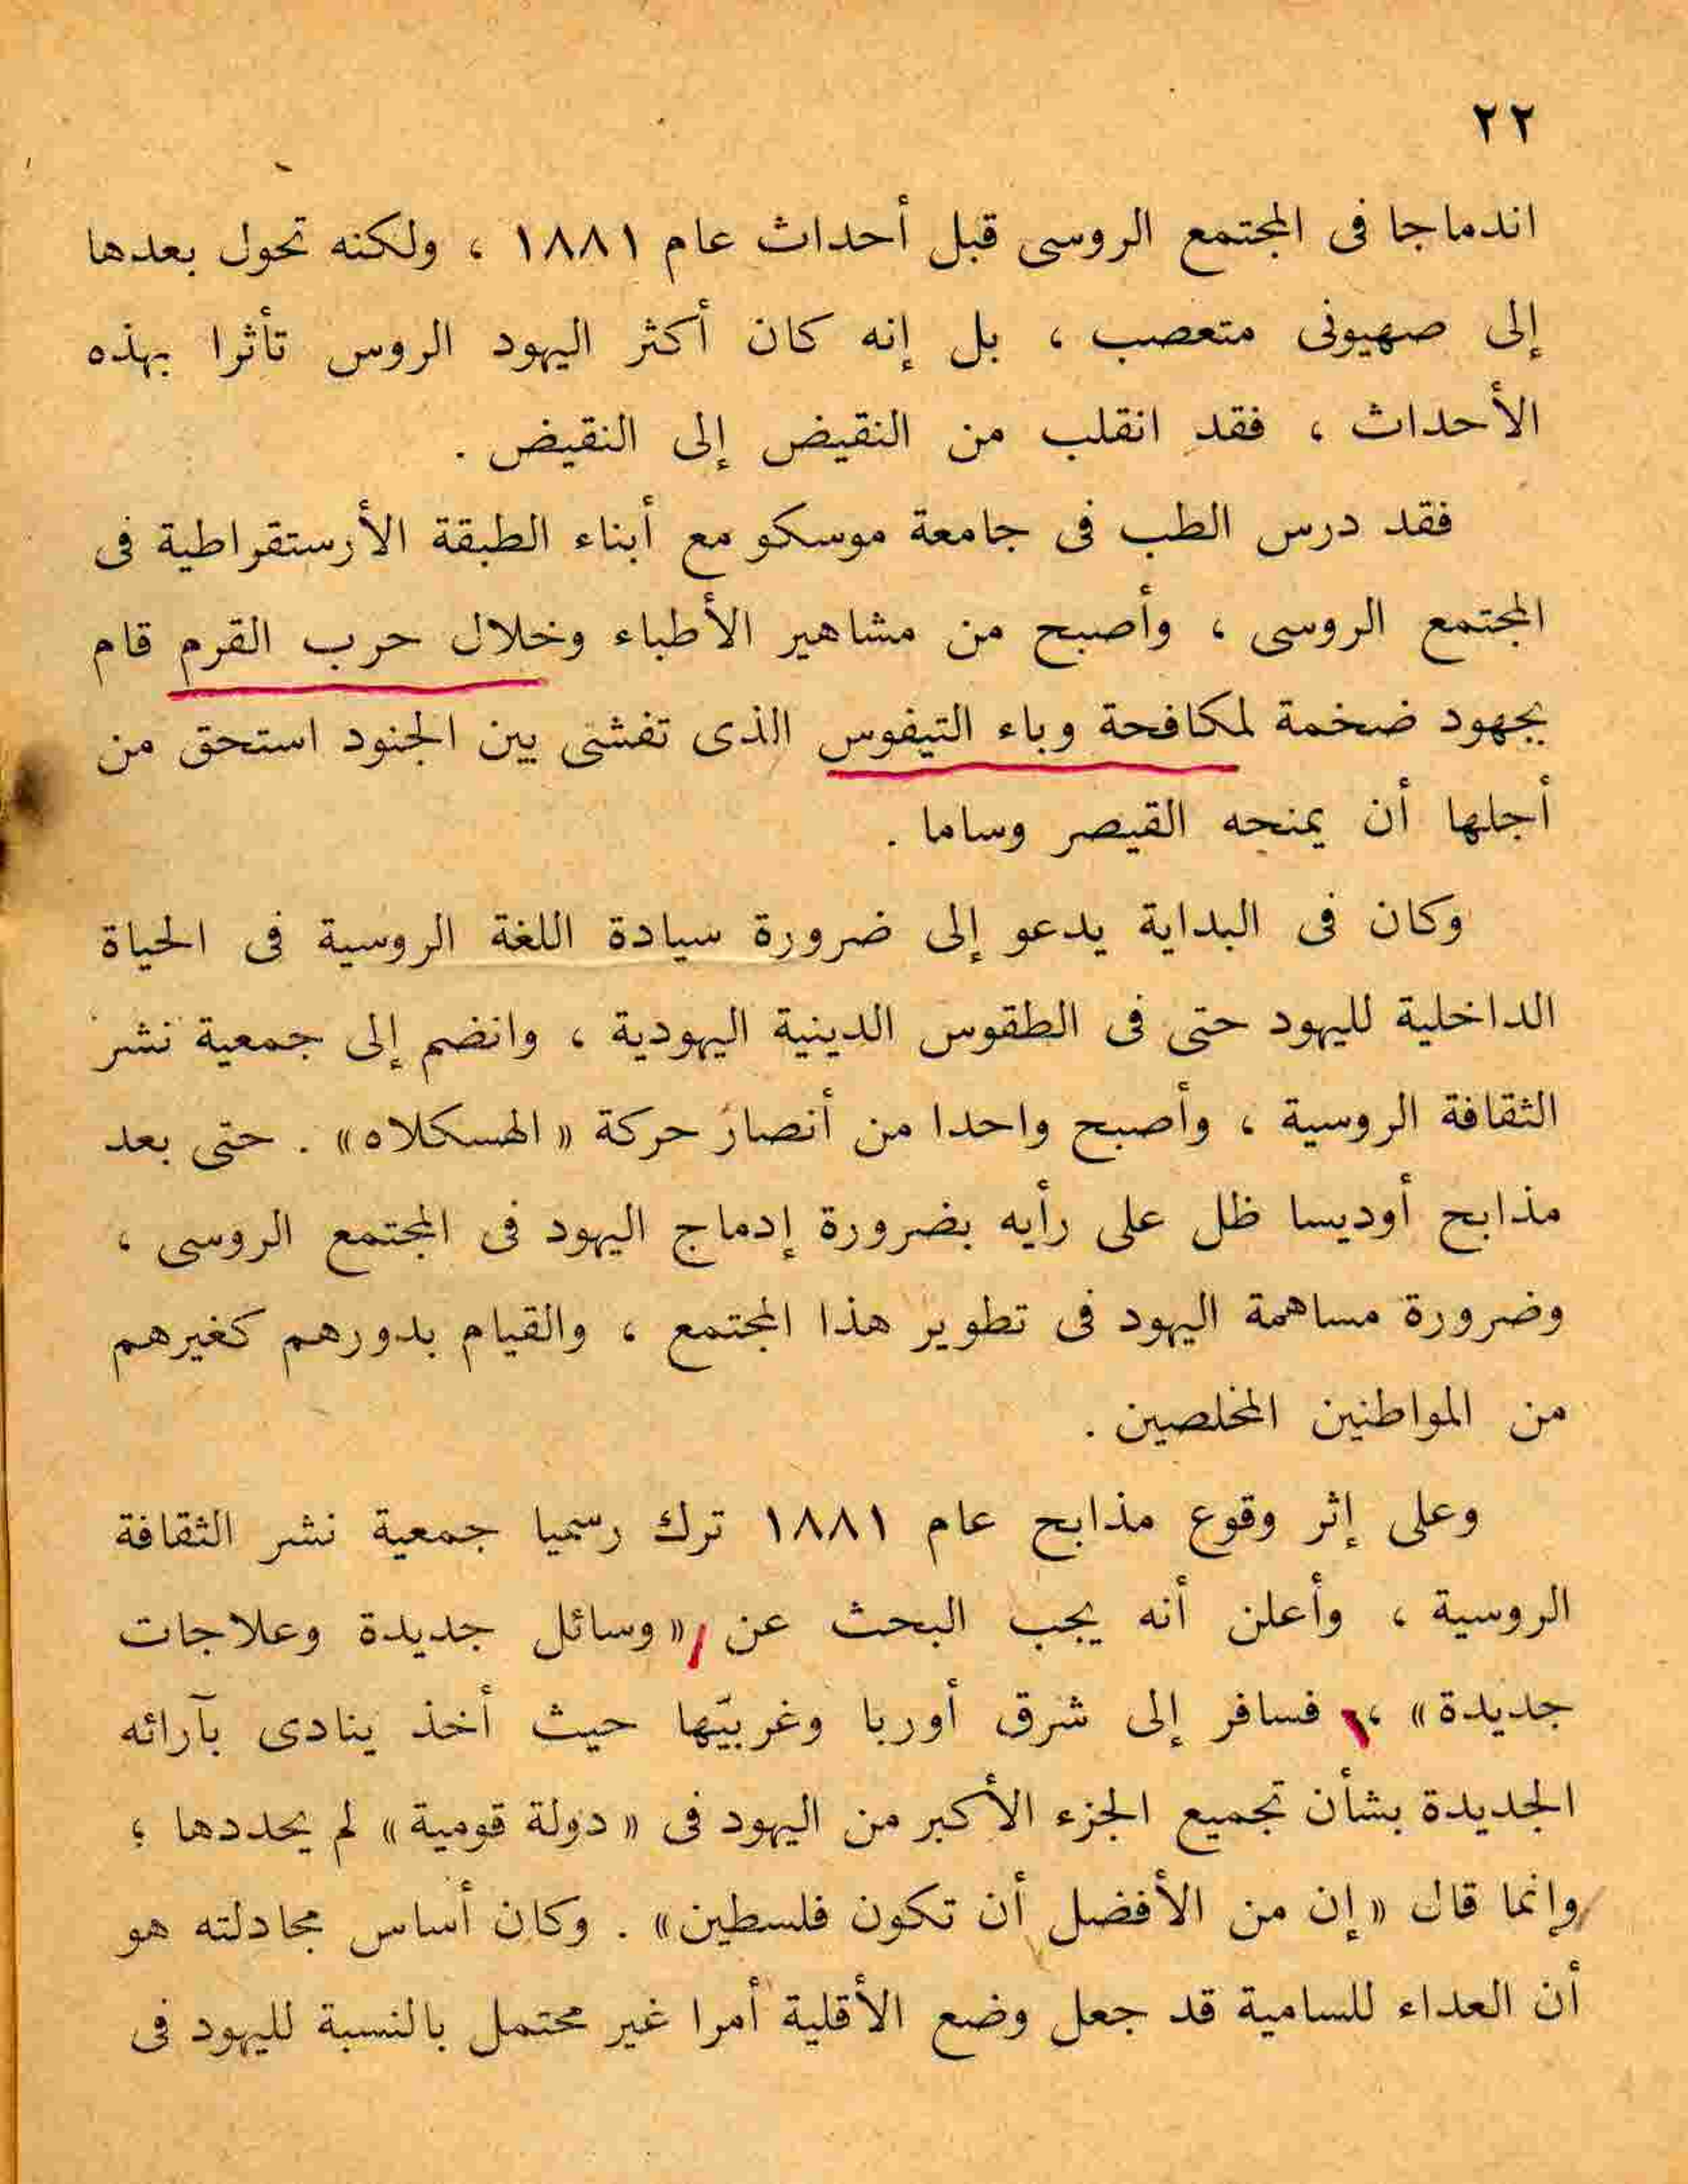 ٢٢
اندماجا فى المجتمع الروسى قبل أحداث عام ١٨٨١ ، ولكنه تحول بعدها
إلى صهيونى متعصب ، بل إنه كان أكثر اليهود الروس تأثرا بهذه
الأحداث ، فقد انقلب من النقيض إلى النقيض .
فقد درس الطب فى جامعة موسكو مع أبناء الطبقة الأرستقراطية فى
المجتمع الروسى ، وأصبح من مشاهير الأطباء وخلال حرب القرم قام
بجهود ضخمة لمكافحة وباء التيفوس الذى تفشى بين الجنود استحق من
أجلها أن يمنحه القيصر وساما .
وكان فى البداية يدعو إلى ضرورة سيادة اللغة الروسية فى الحياة
الداخلية لليهود حتى فى الطقوس الدينية اليهودية ، وانضم إلى جمعية نشر
الثقافة الروسية ، وأصبح واحدا من أنصار حركة « الهسكلاه» . حتى بعد
مذابح أوديسا ظل على رأيه بضرورة إدماج اليهود فى المجتمع الروسى ،
وضرورة مساهمة اليهود فى تطوير هذا المجتمع ، والقيام بدورهم كغيرهم
من المواطنين المخلصين .
وعلى إثر وقوع مذابح عام ١٨٨١ ترك رسميا جمعية نشر الثقافة
الروسية ، وأعلن أنه يجب البحث عن « وسائل جديدة وعلاجات
جديدة» ، فسافر إلى شرق أوربا وغربيّها حيث أخذ ينادى بآرائه
الجديدة بشأن تجميع الجزء الأكبر من اليهود فى « دولة قومية» لم يحددها ؛
وإنما قال « إن من الأفضل أن تكون فلسطين» . وكان أساس مجادلته هو
أن العداء للسامية قد جعل وضع الأقلية أمرا غير محتمل بالنسبة لليهود فى